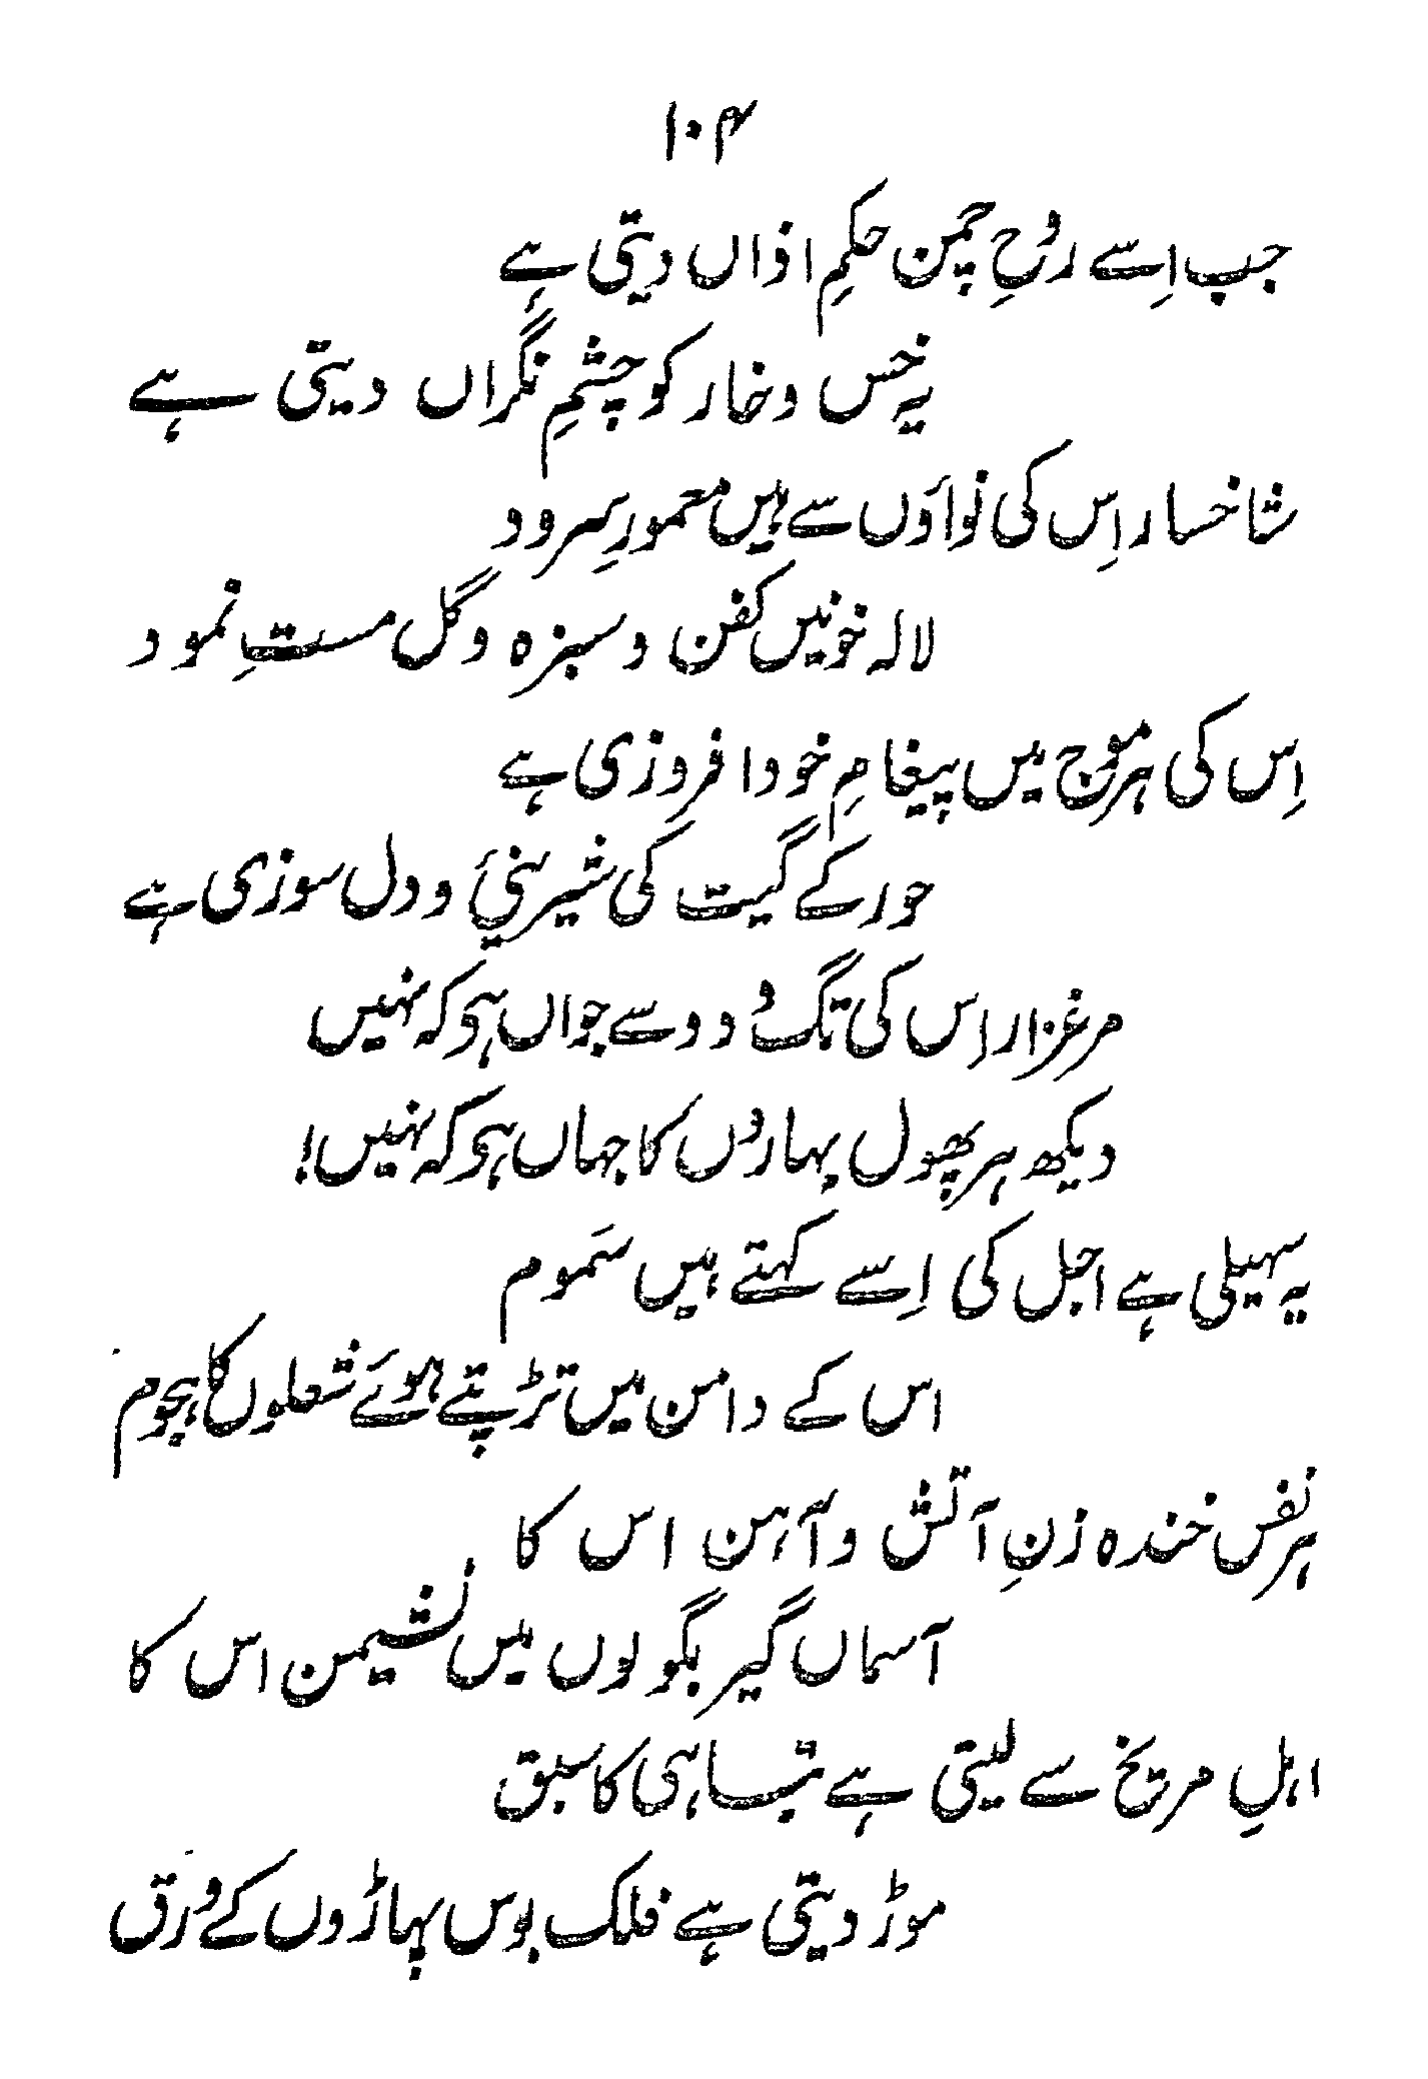 ۱۰۴
جب اِسے روحِ چمن حکمِ اذاں دیتی ہے
یہ خس و خار کو چشمِ نگراں دیتی ہے
شاخسار اِس کی نواؤں سے ہیں معمورِ سرود
لالہ خونیں کفن و سبزہ و گل مستِ نمود
اِس کی ہر موج میں پیغامِ خود افروزی ہے
حور کے گیت کی شیرینیٔ و دل سوزی ہے
مرغزار اِس کی تگ و دو سے جواں ہو کہ نہیں
دیکھ ہر پھول بہاروں کا جہاں ہو کہ نہیں!
یہ سہیلی ہے اجل کی اِسے کہتے ہیں سَموم
اس کے دامن میں تڑپتے ہوئے شعلوں کا ہجوم
ہر نفس خندہ زنِ آتش و آہن اس کا
آسماں گیر بگولوں میں نشیمن اس کا
اہلِ مریخ سے لیتی ہے تباہی کا سبق
موڑ دیتی ہے فلک بوس پہاڑوں کے ورق